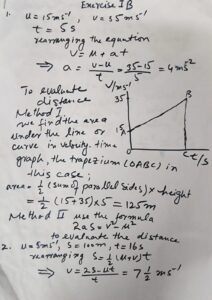 Exercise 1B
1. u = 15ms⁻¹, v = 35ms⁻¹
t = 5s
rearranging the equation
v = u + at
⇒ a = (v-u)/t = (35-15)/5 = 4ms⁻²
To evaluate
distance
Method I
we find the area
under the line or
curve in velocity-time
graph, the trapezium (OABC) in
this case;
area = ½ (sum of parallel sides) × height
= ½ (15+35)×5 = 125m
Method II use the formula
2aS = v² - u²
to evaluate the distance
2. u = 5ms⁻¹, S = 100m, t = 16s
rearranging S = ½(u+v)t
⇒ v = (2S - ut)/t = 7½ ms⁻¹
V/ms⁻¹
35
B
15 A
O
C t/s